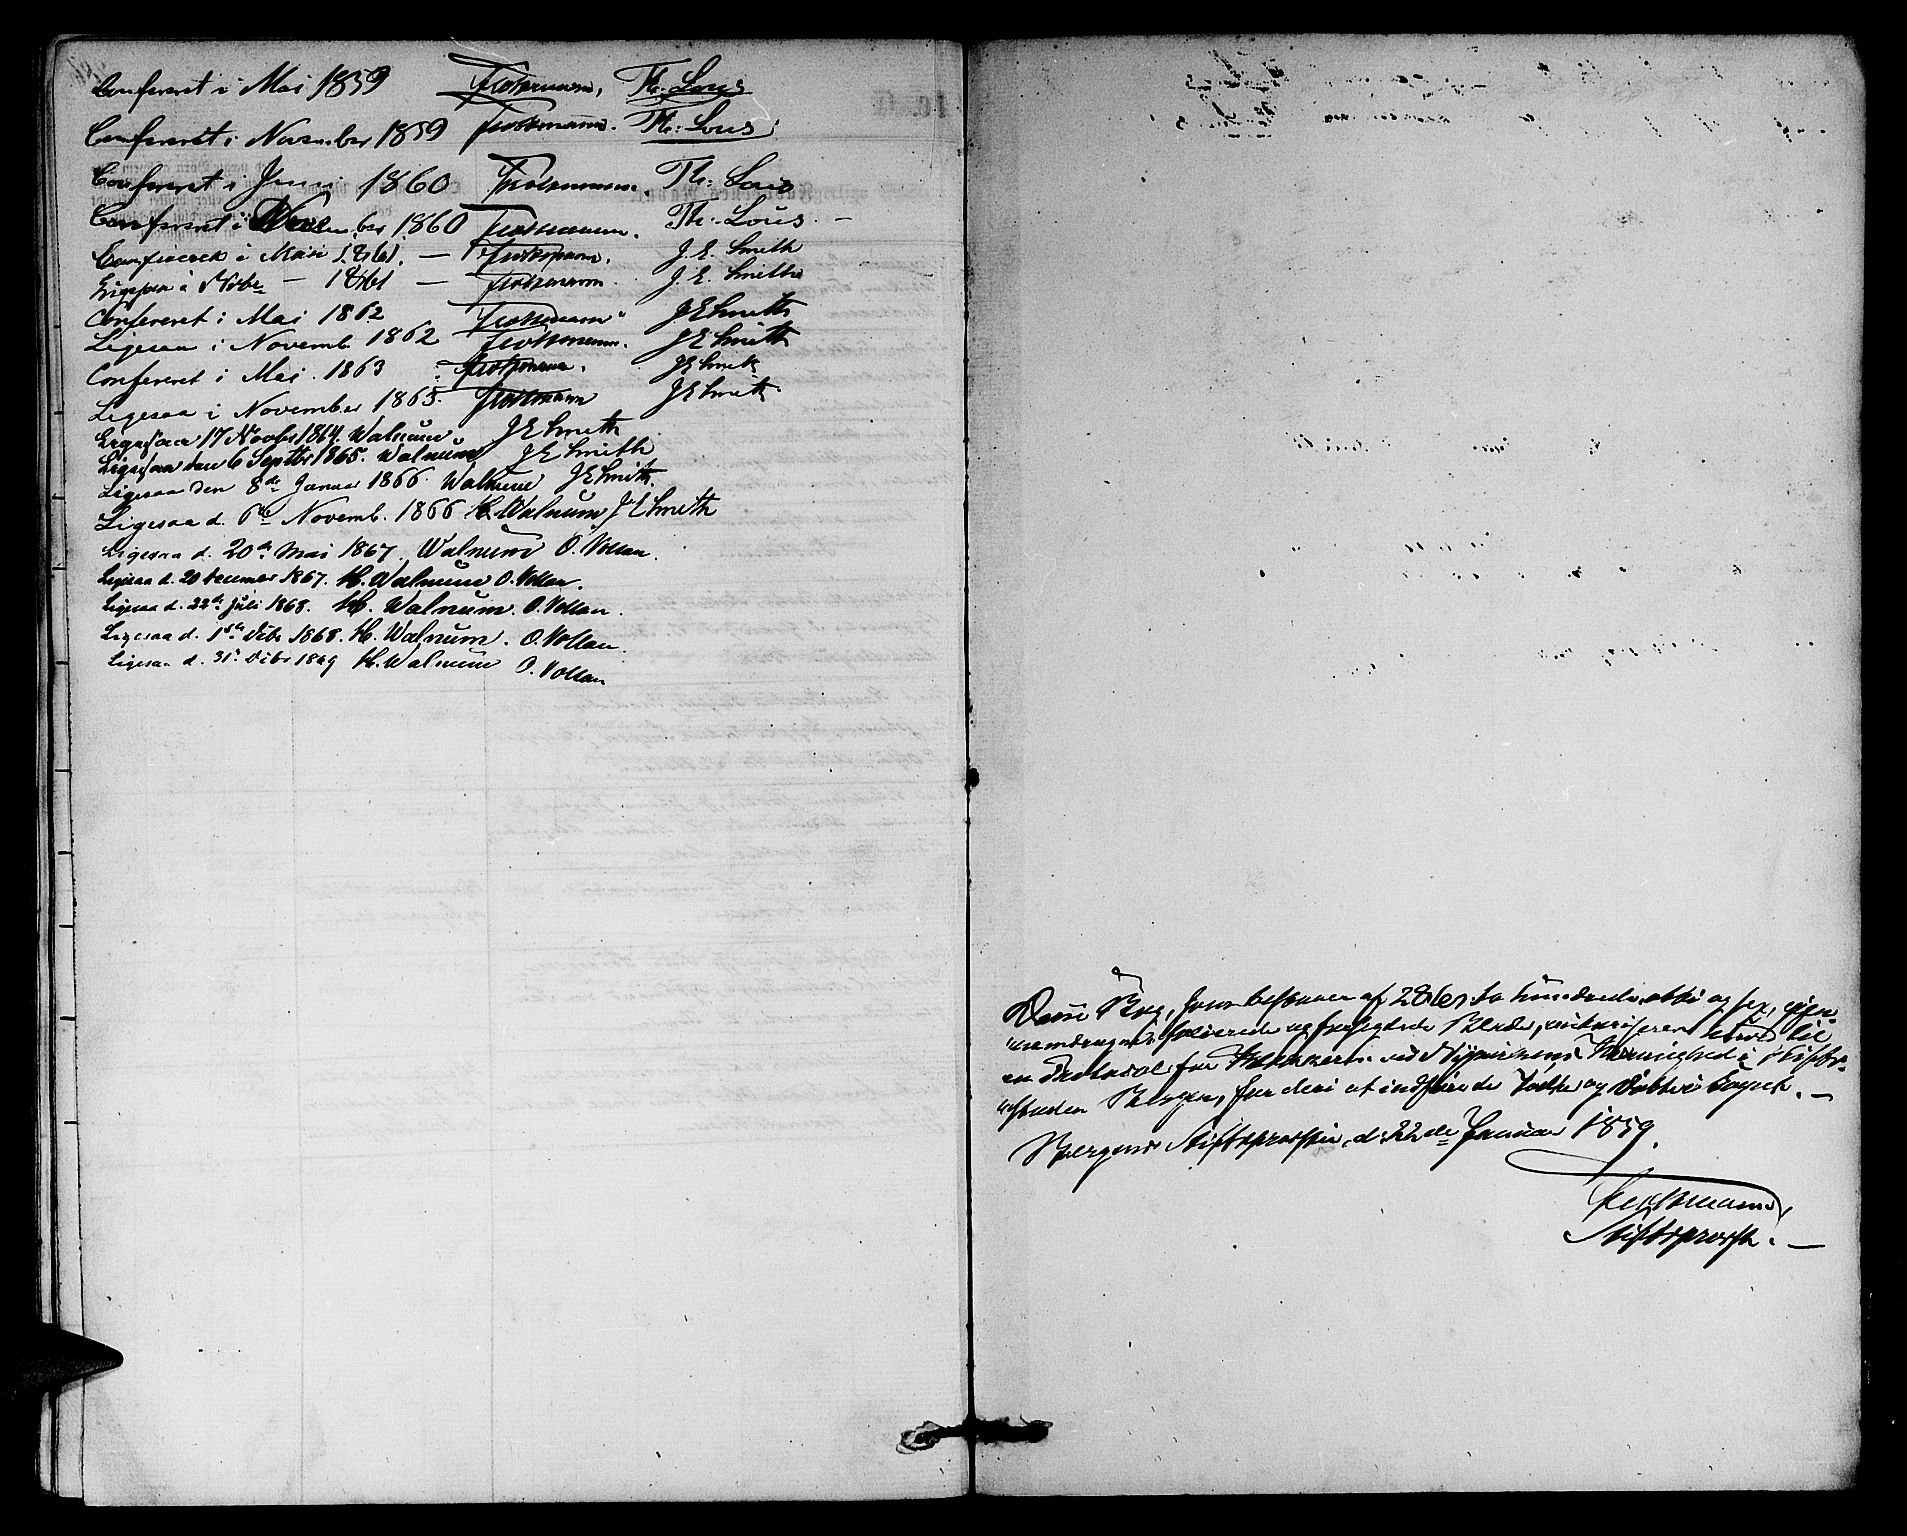 Confereret i Mai 1859 Th. Lous
Confereret i November 1859 Th: Lous
Confereret i Juni 1860 Th: Lous
Confereret i November 1860 Th. Lous. —
Confereret i Mai 1861. — J. E. Smith
Ligesaa i Novbr — 1861 — J. E. Smith
Confereret i Mai 1862 J E Smith
Ligesaa i Novemb 1862 J E Smith
Confereret i Mai. 1863 J E Smith
Ligesaa i November 1863. J E Smith
Ligesaa 17 Novbr 1864. Walnum J E Smith
Ligesaa den 6 Septbr 1865. Walnum J E Smith
Ligesaa den 8de Januar 1866. Walnum J E Smith.
Ligesaa d. 6te Novemb. 1866 H. Walnum J E Smith
Ligesaa d. 20de Mai 1867. Walnum O. Vollan.
Ligesaa d. 20 December 1867. H. Walnum O. Vollan.
Ligesaa d. 22de Juli 1868. H. Walnum. O. Vollan.
Ligesaa d. 1ste Debr 1868. H. Walnum. O. Vollan.
Ligesaa d. 31te Debr 1869 H. Walnum O. Vollan
Denne Bog, som bestaaer af 286, to hundrede otti og sex, igjen-
nemdragne, folierede og forseglede Blade, autoriseres herved til
en Protocol for Klokkeren ved Nykirkens Menighed i Stifts-
staden Bergen, for deri at indføre de fødte og døbte i Sognet. —
Bergens Stiftsprovsti, d. 22de Januar 1859.
Stiftsprovst. —